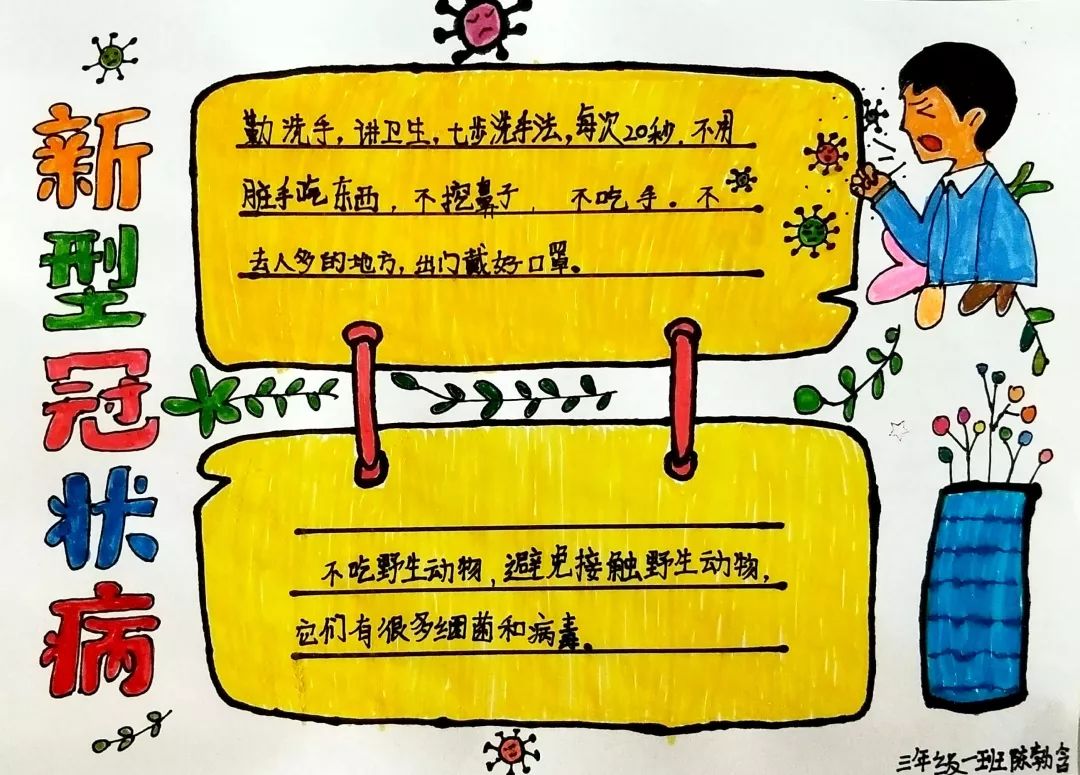 新型冠状病
勤洗手，讲卫生，七步洗手法，每次20秒．不用
脏手吃东西，不挖鼻子，不吃手。不
去人多的地方，出门戴好口罩。
不吃野生动物，避免接触野生动物，
它们有很多细菌和病毒。
三年级一班陈勃含